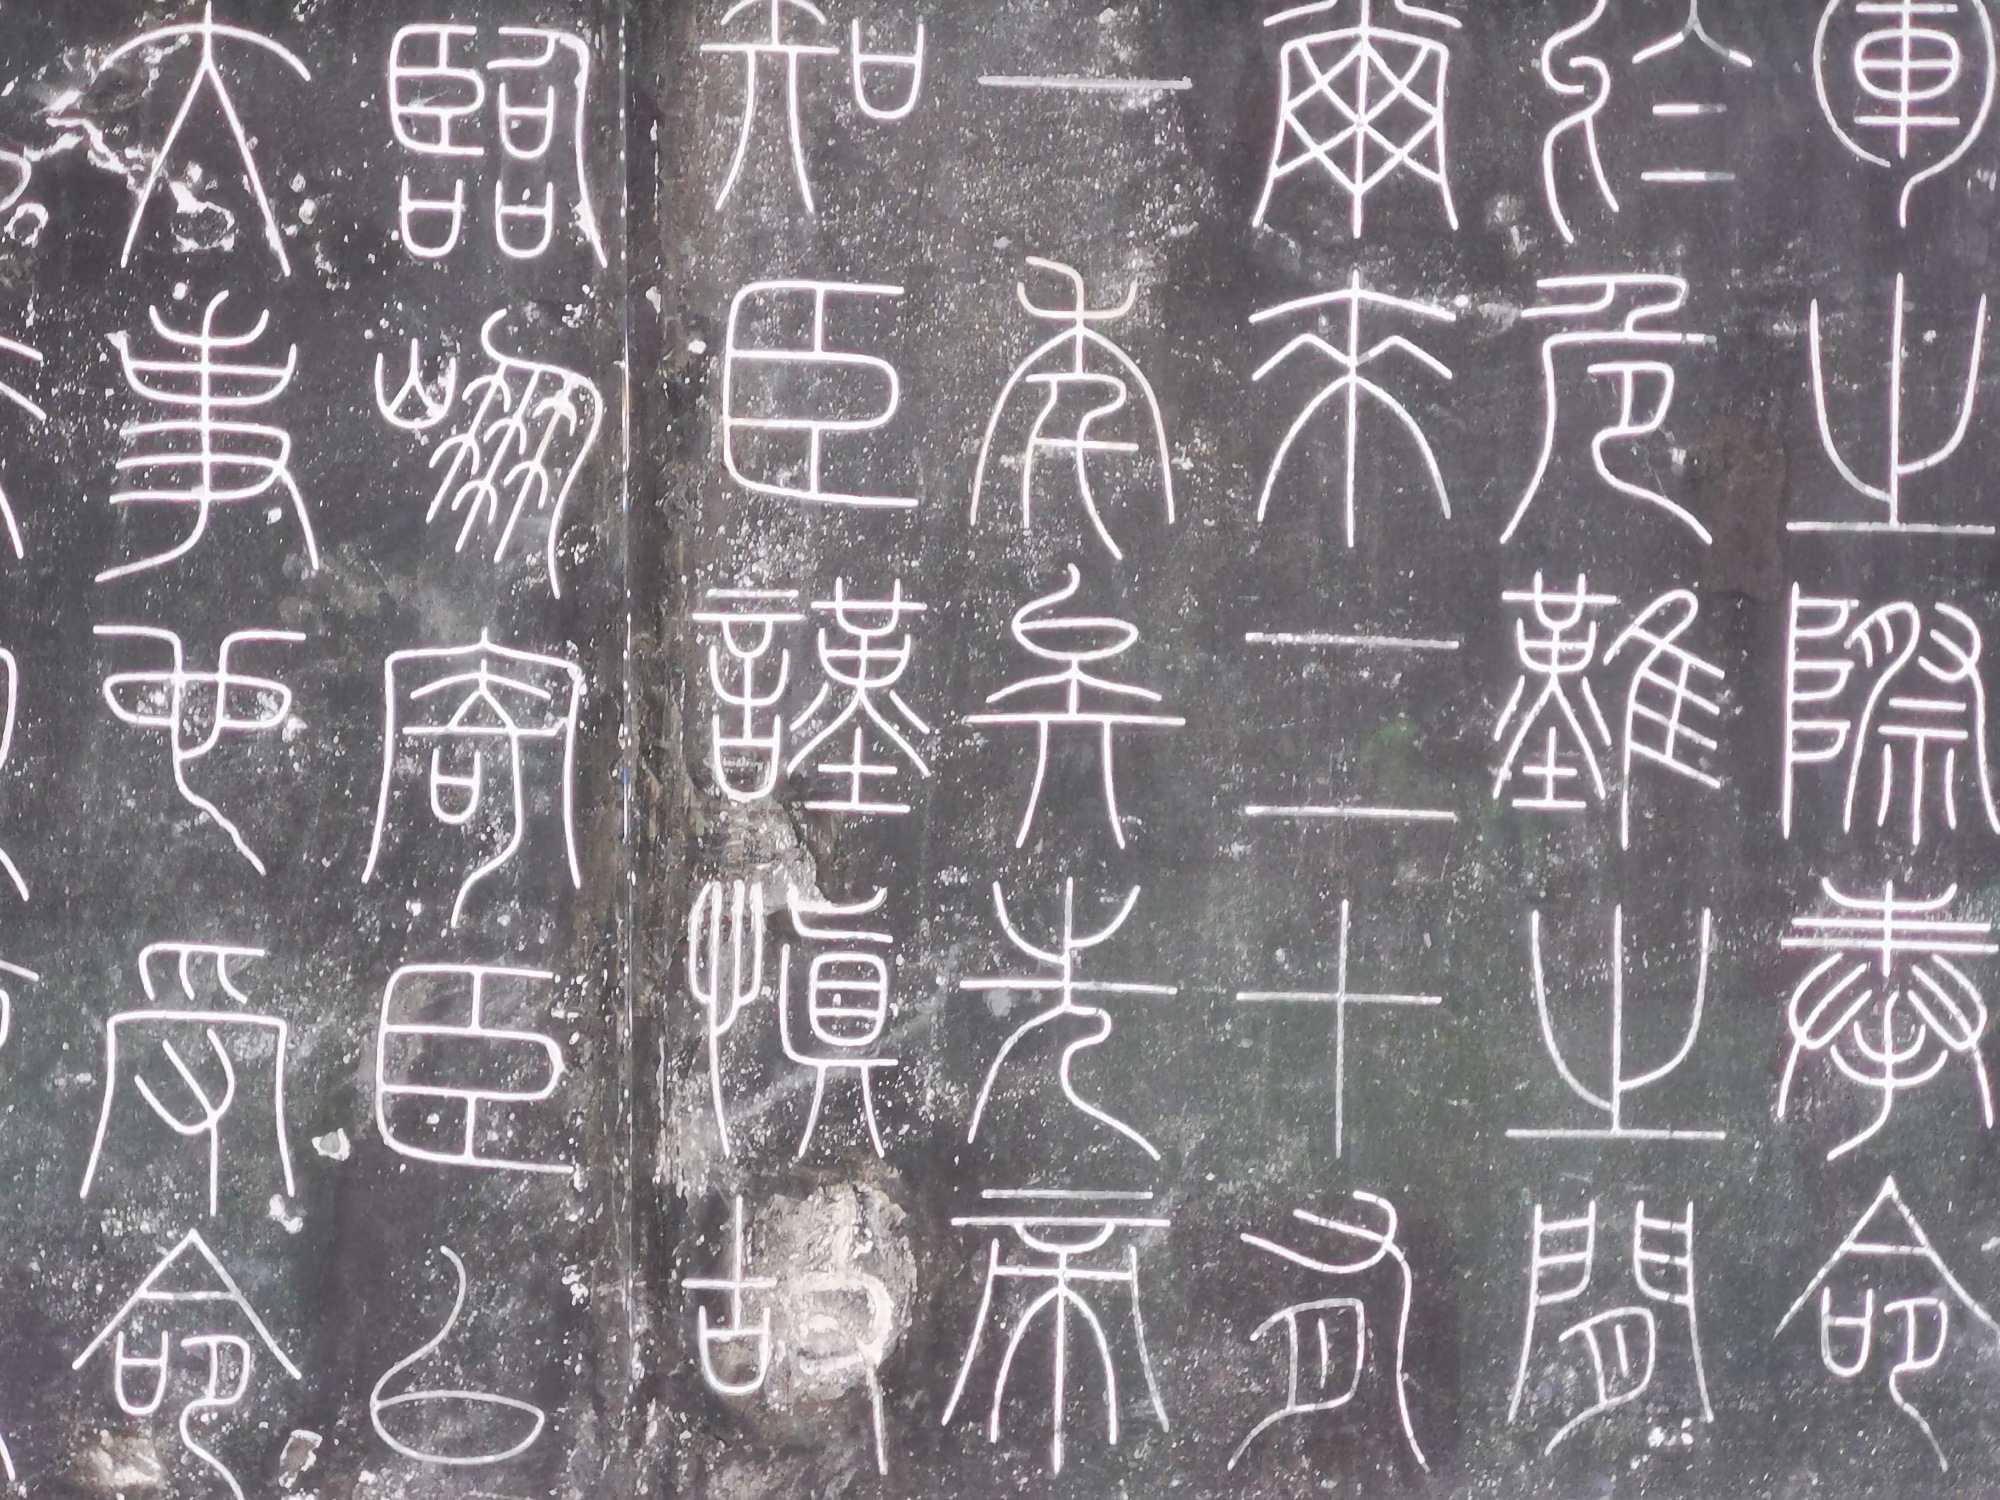 軍之際奉命
於危難之閒
爾來二十有
一年矣先帝
知臣謹慎故
臨崩寄臣以
大事也受命